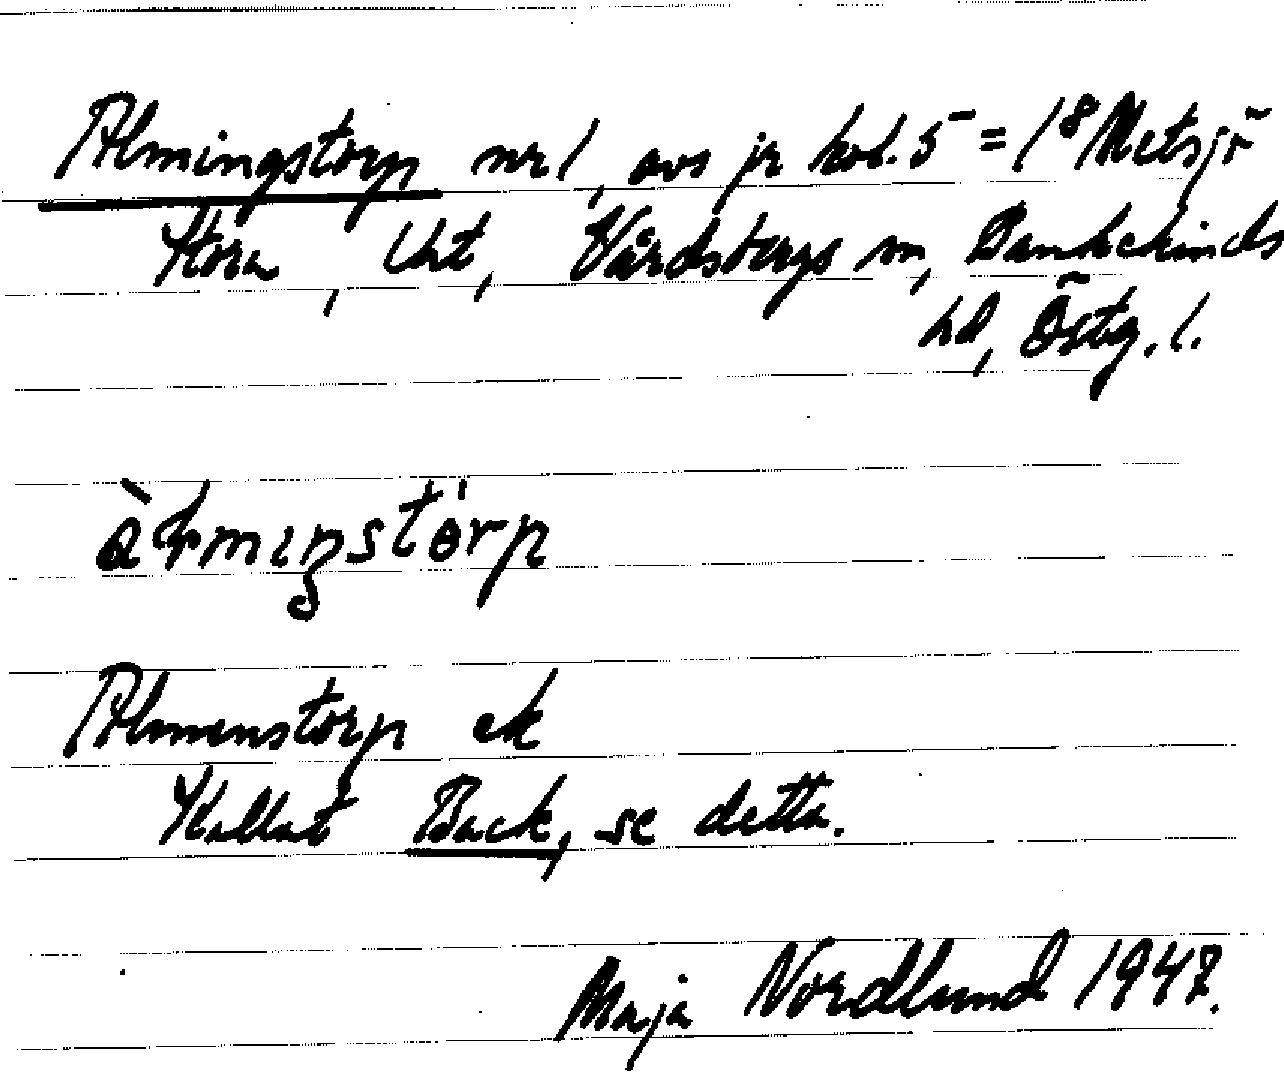 Almingstorp nr 1, avs jr kol. 5 = 1⁸ Metsjö
Stora, Uht, Vårdsbergs sn, Bankekinds
hd, Östg. l.
àłmıŋstórp
Almenstorp ek
Kallat Back, se detta.
Maja Nordlund 1947.